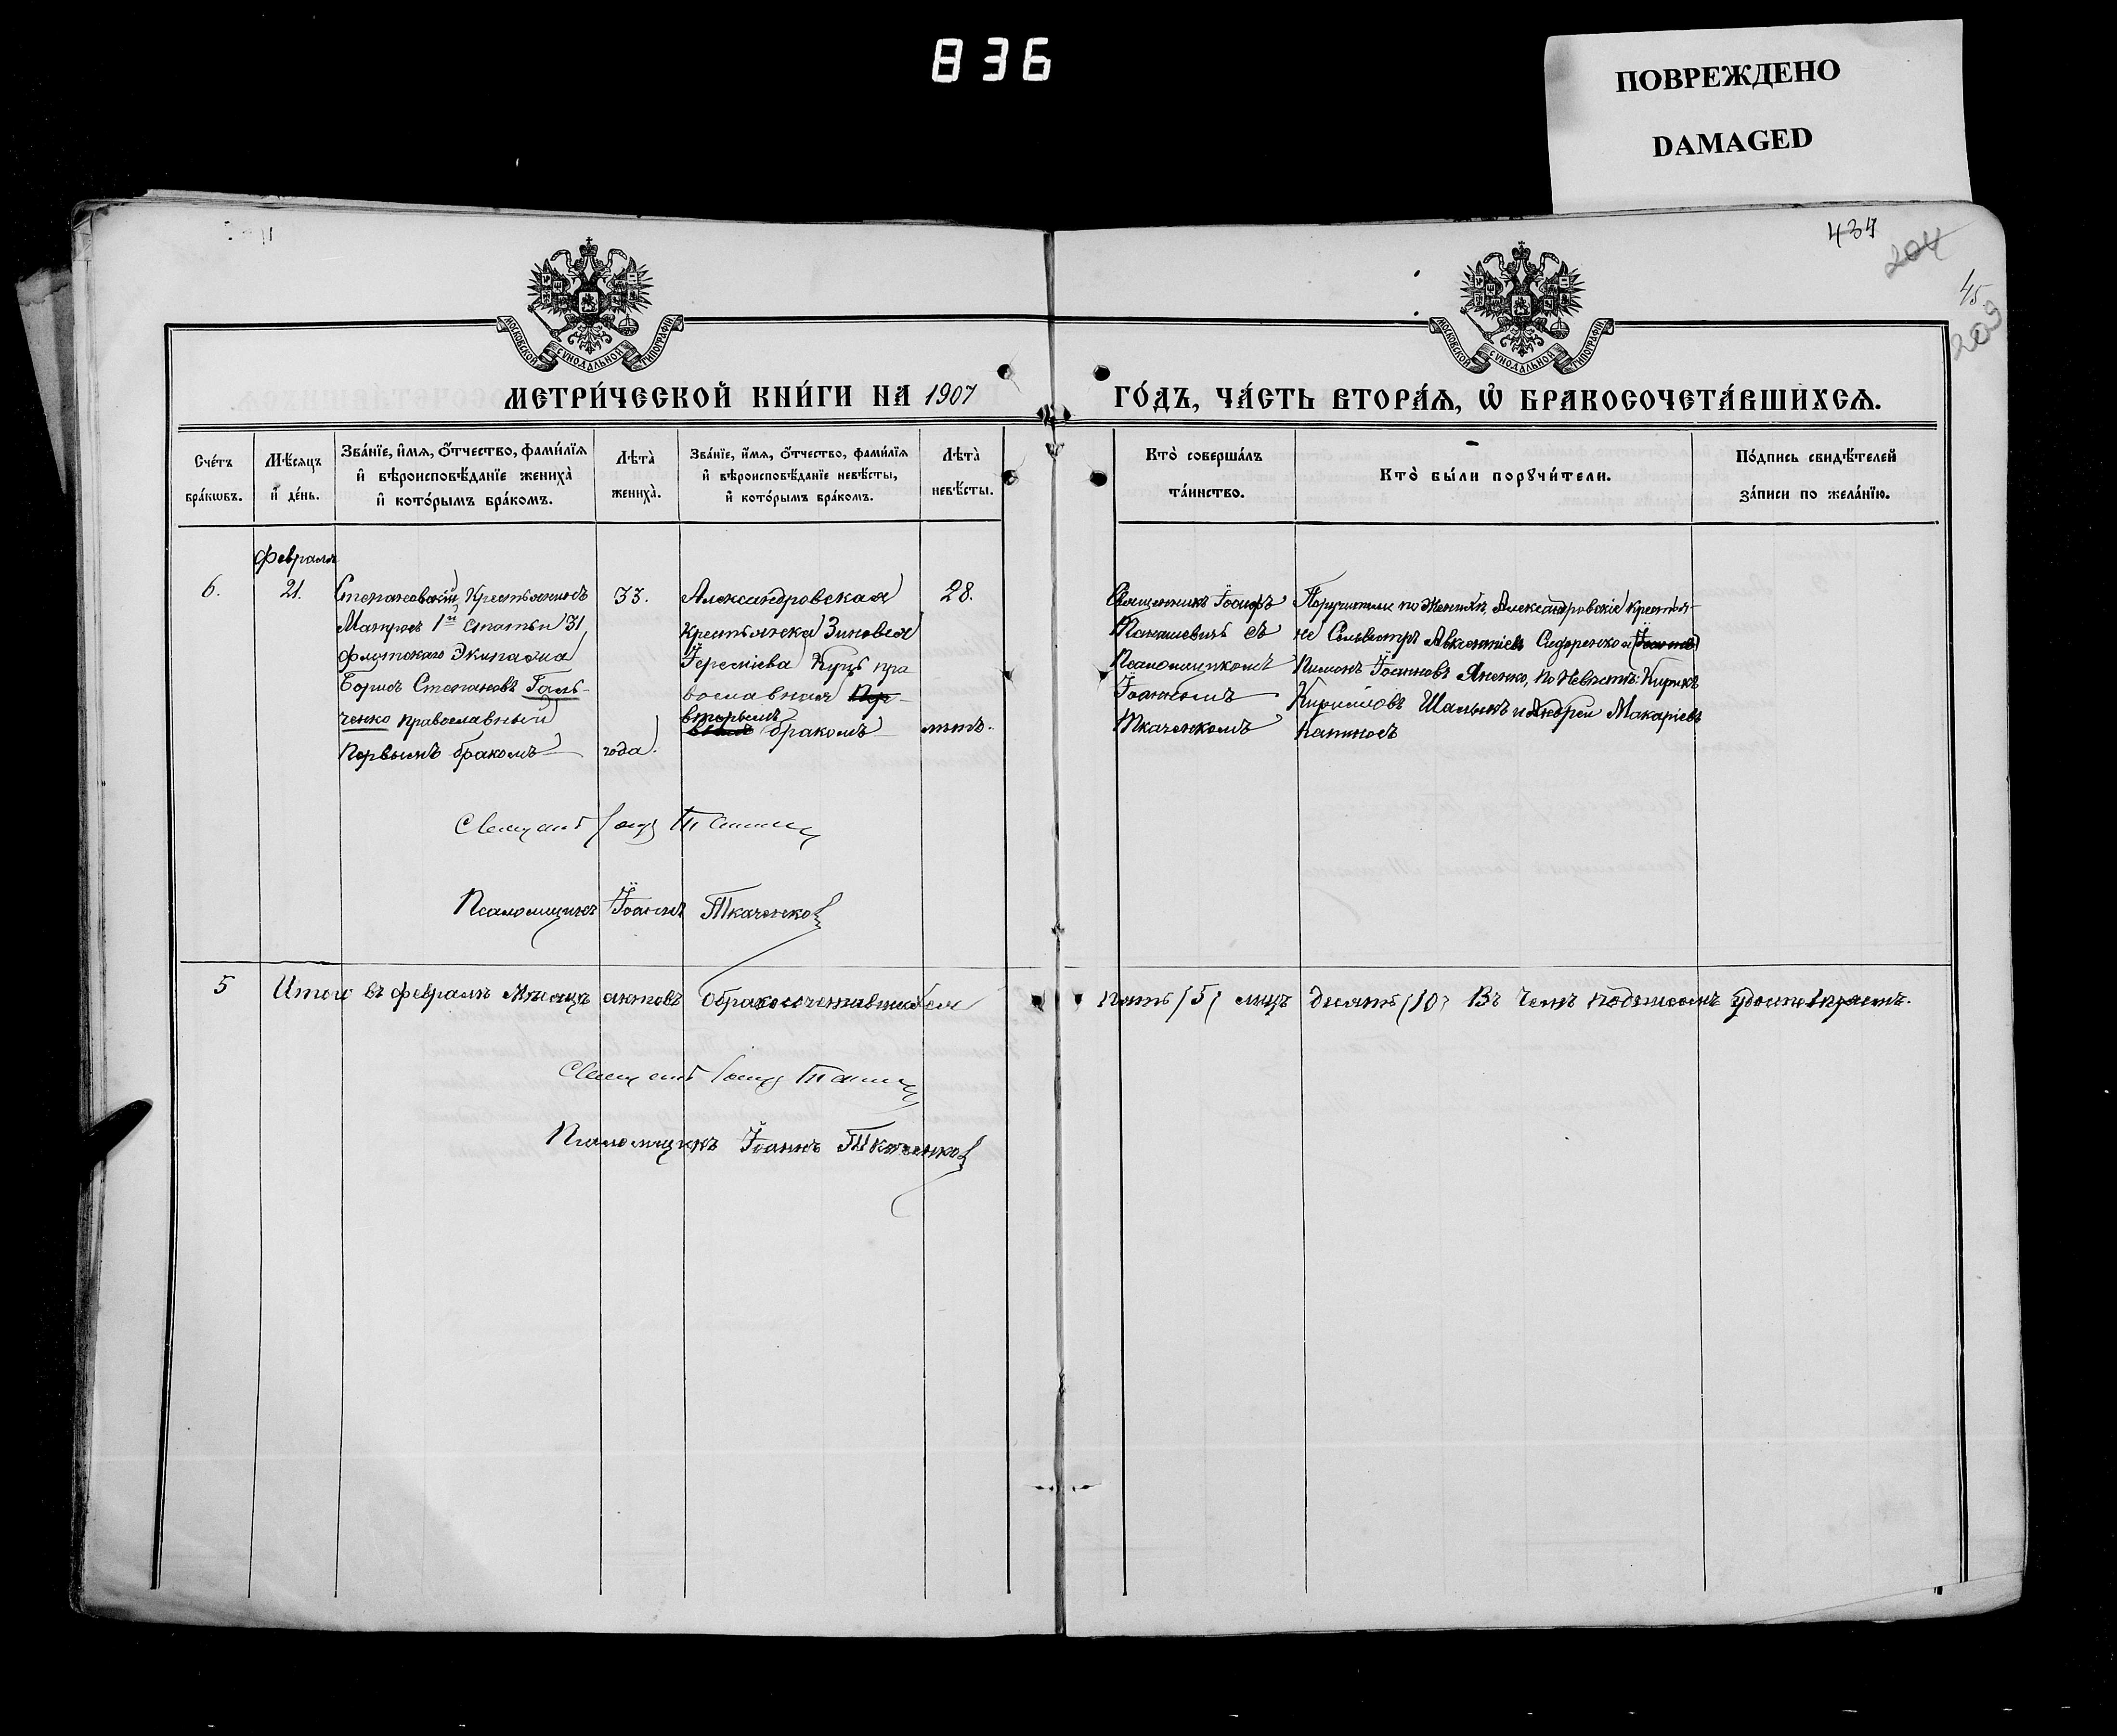 836
ПОВРЕЖДЕНО
DAMAGED
434
204
45
209
МОСКОВСКОЙ СУНОДАЛЬНОЙ ТИПОГРАФІИ
МОСКОВСКОЙ СУНОДАЛЬНОЙ ТИПОГРАФІИ
МЕТРИ́ЧЕСКОЙ КНИ́ГИ НА 1907 ГО́ДЪ, ЧА́СТЬ ВТОРА́Я, Ѡ БРАКОСОЧЕТА́ВШИХСЯ.
Сче́тъ бра́кωвъ.
Мѣ́сяцъ и де́нь.
Зва́нїе, и́мя, о́тчество, фами́лїя и вѣроисповѣ́данїе жениха̀ и кото́рымъ бра́комъ.
Лѣта̀ жениха̀.
Зва́нїе, и́мя, о́тчество, фами́лїя и вѣроисповѣ́данїе невѣ́сты, и кото́рымъ бра́комъ.
Лѣта̀ невѣ́сты.
Кто̀ соверша́лъ та́инство.
Кто̀ бы́ли порꙋчи́тели.
По́дпись свидѣ́телей за́писи по жела́нїю.
Февраля
6.
21.
Степановскій Крестьянинъ
Матросъ 1й Статьи 31
флотскаго Экипажа
Борисъ Степановъ Галь-
ченко православный
Первымъ бракомъ
33.
года.
Александровская
Крестьянка Зиновея
Іереміева Куцъ пра
вославная Пер-
вторымъ
бракомъ
28.
лѣтъ.
Священникъ Іосифъ
Панашевичъ съ
Псаломщикомъ
Іоанномъ
Ткаченкомъ
Поручители по Женихѣ, Александровскіе Крестья-
не Сельвестръ Авксентіевъ Сидоренко и Іоаннъ
Пименъ Іоанновъ Яненко, по Невѣстѣ: Кирикъ
Кирилловъ Шалыкъ и Андрей Макаріевъ
Капиносъ
Псаломщикъ Іоаннъ Ткаченко
5 Итого въ февралѣ Мѣсяцѣ актовъ о бракосочетавшихся пять /5/ лицъ десять /10/ Въ Чемъ подписомъ удостовѣряемъ.
Псаломщикъ Іоаннъ Ткаченко